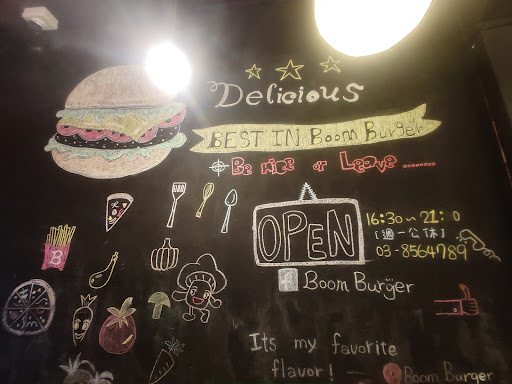 Delicious
BEST IN Boom Burger
Be nice or Leave ........
OPEN
16:30~21:00
[週一公休]
03-8564789
B
Boom Burger
Its my favorite
flavor! —
Boom Burger